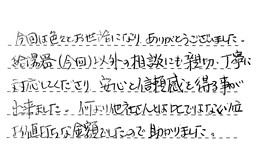 今回は色々とお世話になり ありがとうございました。
給湯器(今回)以外の相談にも親切、丁寧に
対応してくださり 安心と信頼感を得る事が
出来ました。何より他社さんとは比ではない位
お値打ちな金額でしたので助かりました。